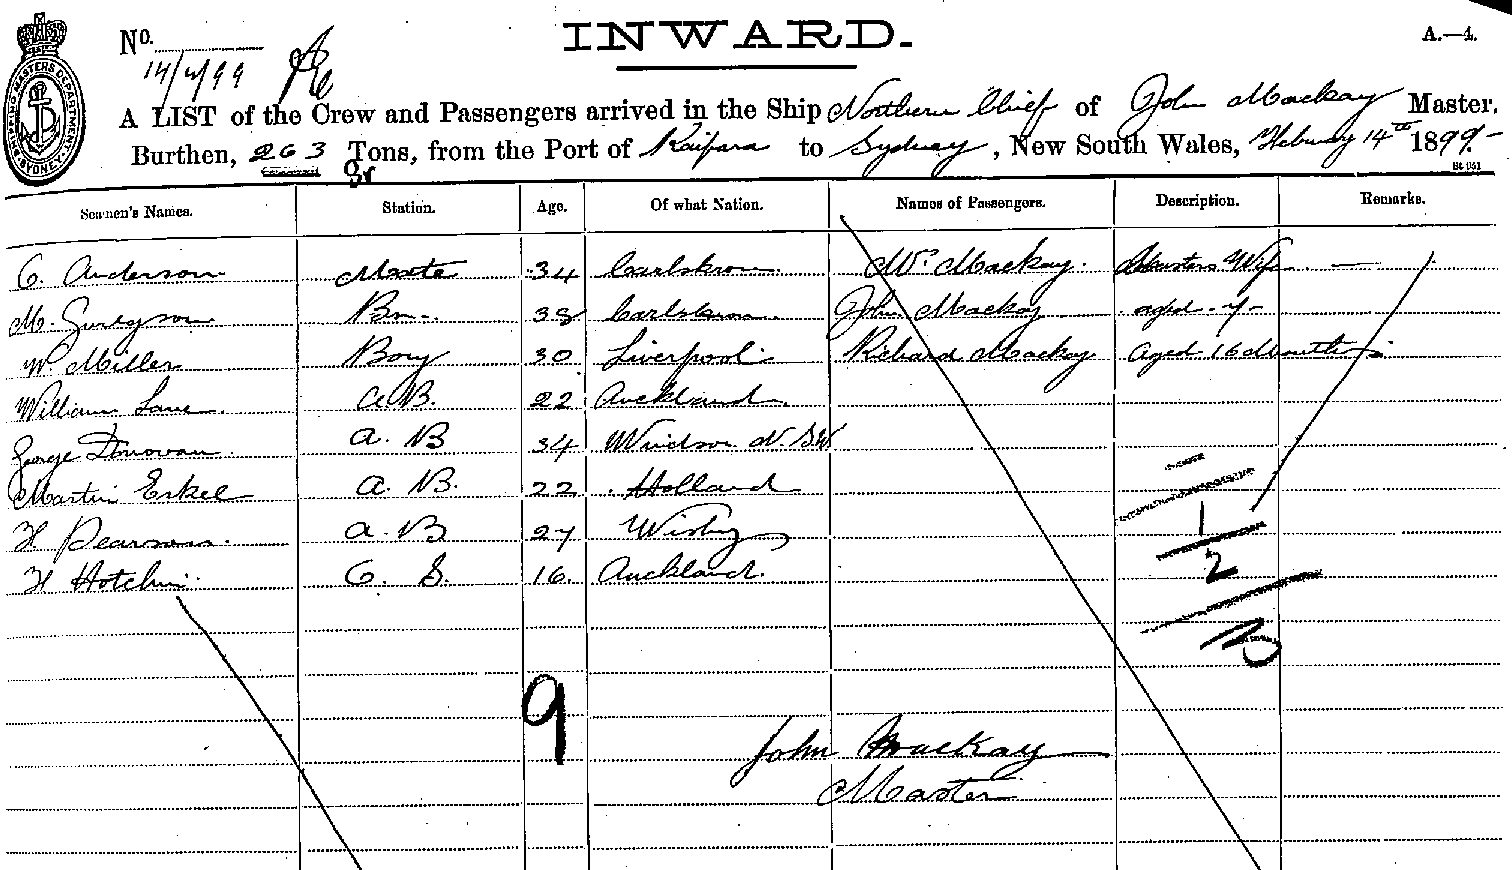 INWARD.
A.—4.
No.
14/2/99
A LIST of the Crew and Passengers arrived in the Ship Northern Chief of John Mackay Master,
Burthen, 263 Tons, from the Port of Kaipara to Sydney, New South Wales, February 14th 1899.
SHIPPING MASTERS DEPARTMENT SYDNEY
Seamen's Names. Station. Age. Of what Nation. Names of Passengers. Description. Remarks.
C. Anderson Mate 34 Carlskrona Mrs Mackay. Masters Wife —
M. Bn. 38 Carlskrona John Mackay aged
W Miller Boy 30 Liverpool Richard Mackay aged 16 Months
William Lane A.B. 22 Auckland
George Donovan A. B 34 Windsor N.S.W
Martin Eskel A. B. 22 Holland
H Pearson A. B 27 Wisby
H Hotchin O. S. 16. Auckland.
1
2
3
9
John Mackay
Master